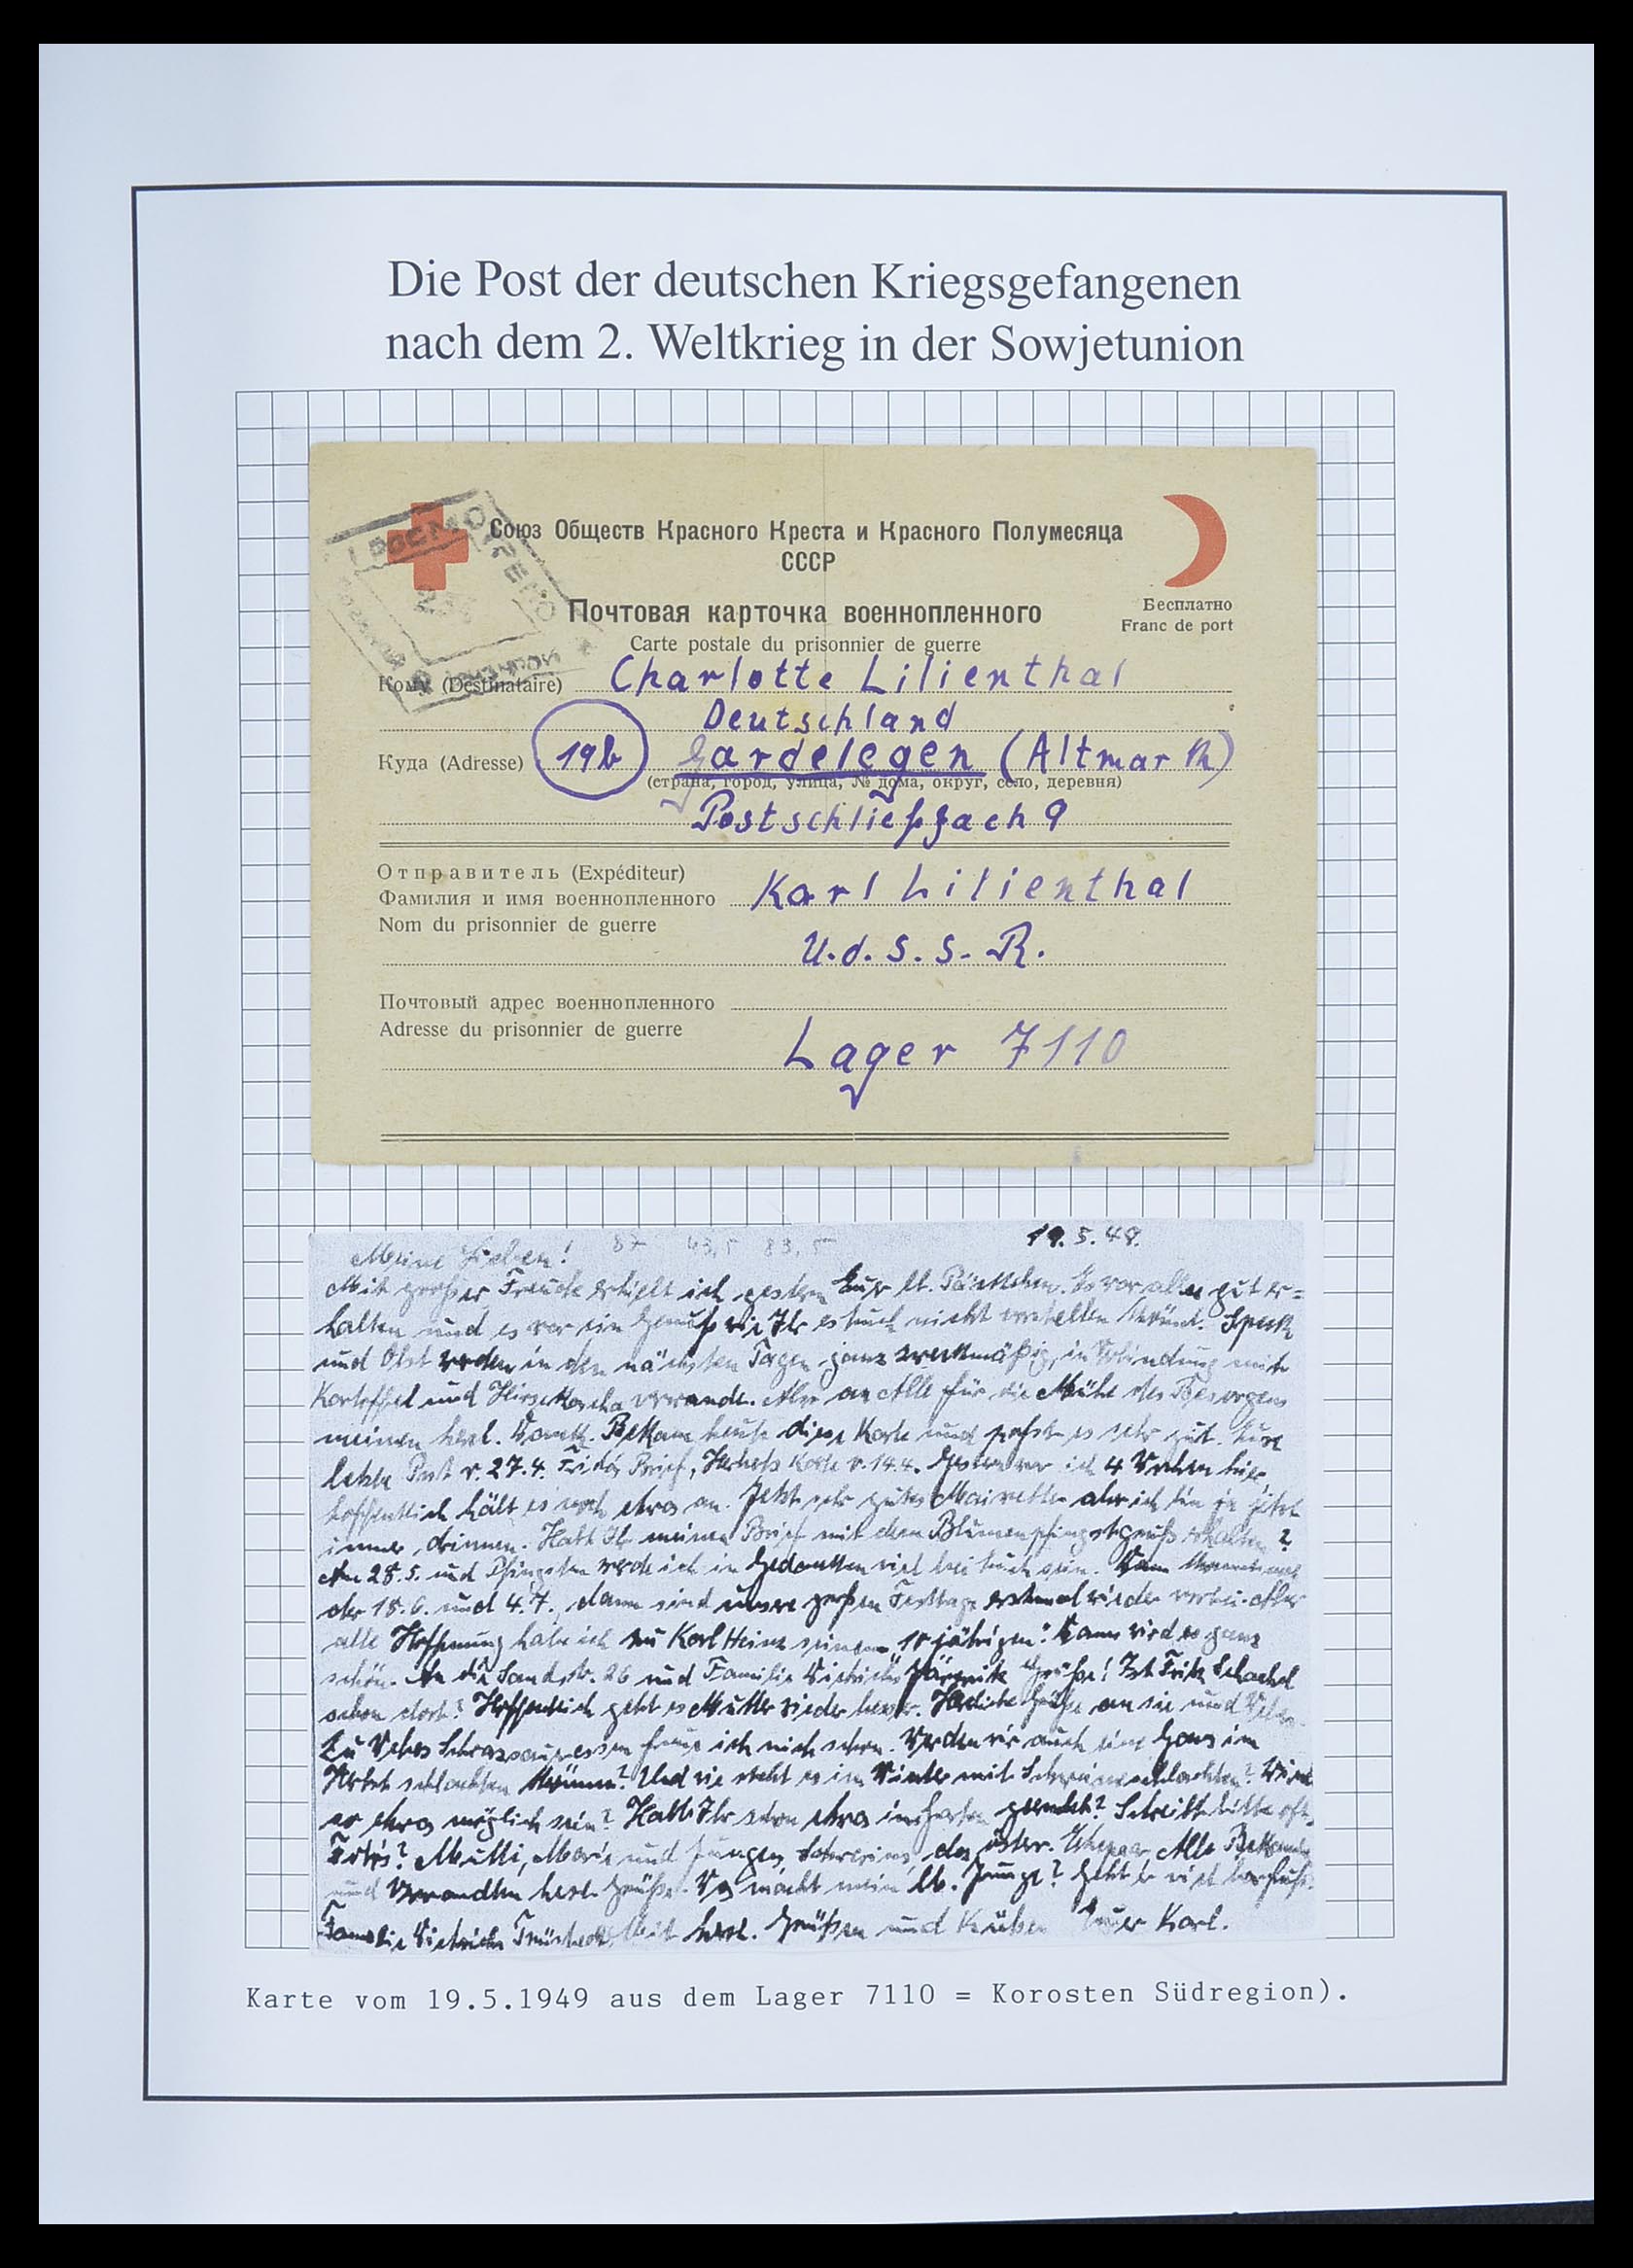 Die Post der deutschen Kriegsgefangenen
nach dem 2. Weltkrieg in der Sowjetunion
Союз Обществ Красного Креста и Красного Полумесяца
СССР
Бесплатно
Franc de port
Почтовая карточка военнопленного
Carte postale du prisonnier de guerre
Кому (Destinataire) Charlotte Lilienthal
Deutschland
Куда (Adresse) 19b Gardelegen (Altmark)
(страна, город, улица, № дома, округ, село, деревня)
Postschließfach 9
Отправитель (Expéditeur)
Фамилия и имя военнопленного Karl Lilienthal
Nom du prisonnier de guerre
U.d.S.S.R.
Почтовый адрес военнопленного
Adresse du prisonnier de guerre
Lager 7110
19.5.49.
Meine Lieben! 87 43,5 83,5
Mit großer Freude erhielt ich gestern Euer lb. Päckchen. Es war alles gut er=
halten und es war ein Genuß wie Ihr es Euch nicht vorstellen könnt. Speck
und Obst werden in den nächsten Tagen ganz zweckmäßig, in Verbindung mit
Kartoffel und Hirsekascha verwandt. Aber an Alle für die Mühe des Besorgens
meinen herzl. Dank. Bekam heute diese Karte und paßt es sehr gut. Eure
letzte Post v. 27.4. Brief, Karte v. 14.4. Gestern war ich 4 Wochen hier,
hoffentlich hält es noch etwas an. Jetzt sehr gutes Maiwetter aber ich bin ja jetzt
immer drinnen. Habt Ihr meinen Brief mit dem Blumenpfingstgruß erhalten?
Am 28.5. und Pfingsten werde ich in Gedanken viel bei Euch sein. Dann
der 18.6. und 4.7., dann sind unsere großen Festtage erstmal wieder vorbei. Aber
alle Hoffnung habe ich zu Karl Heinz seinem 10 jährigen! Dann wird es ganz
schön. An die Sandstr. 26 und Familie Grüße! Ist Fritz
schon dort? Hoffentlich geht es Mutter wieder besser. Herzliche Grüße an sie und
Zu freue ich mich schon. Werden wir auch eine Gans im
Herbst schlachten können? Und wie steht es im Winter mit Schweineschlachten? Wird
so etwas möglich sein? Habt Ihr schon etwas im Garten geerntet? Schreibt bitte oft.
Fotos? Mutti, und Jungen, das österr. Ehepaar, Alle Bekannte
und Verwandten herzl. Grüße. Was macht mein lb. Junge? Geht er viel barfuß.
Familie Mit herzl. Grüßen und Küssen Euer Karl.
Karte vom 19.5.1949 aus dem Lager 7110 = Korosten Südregion).